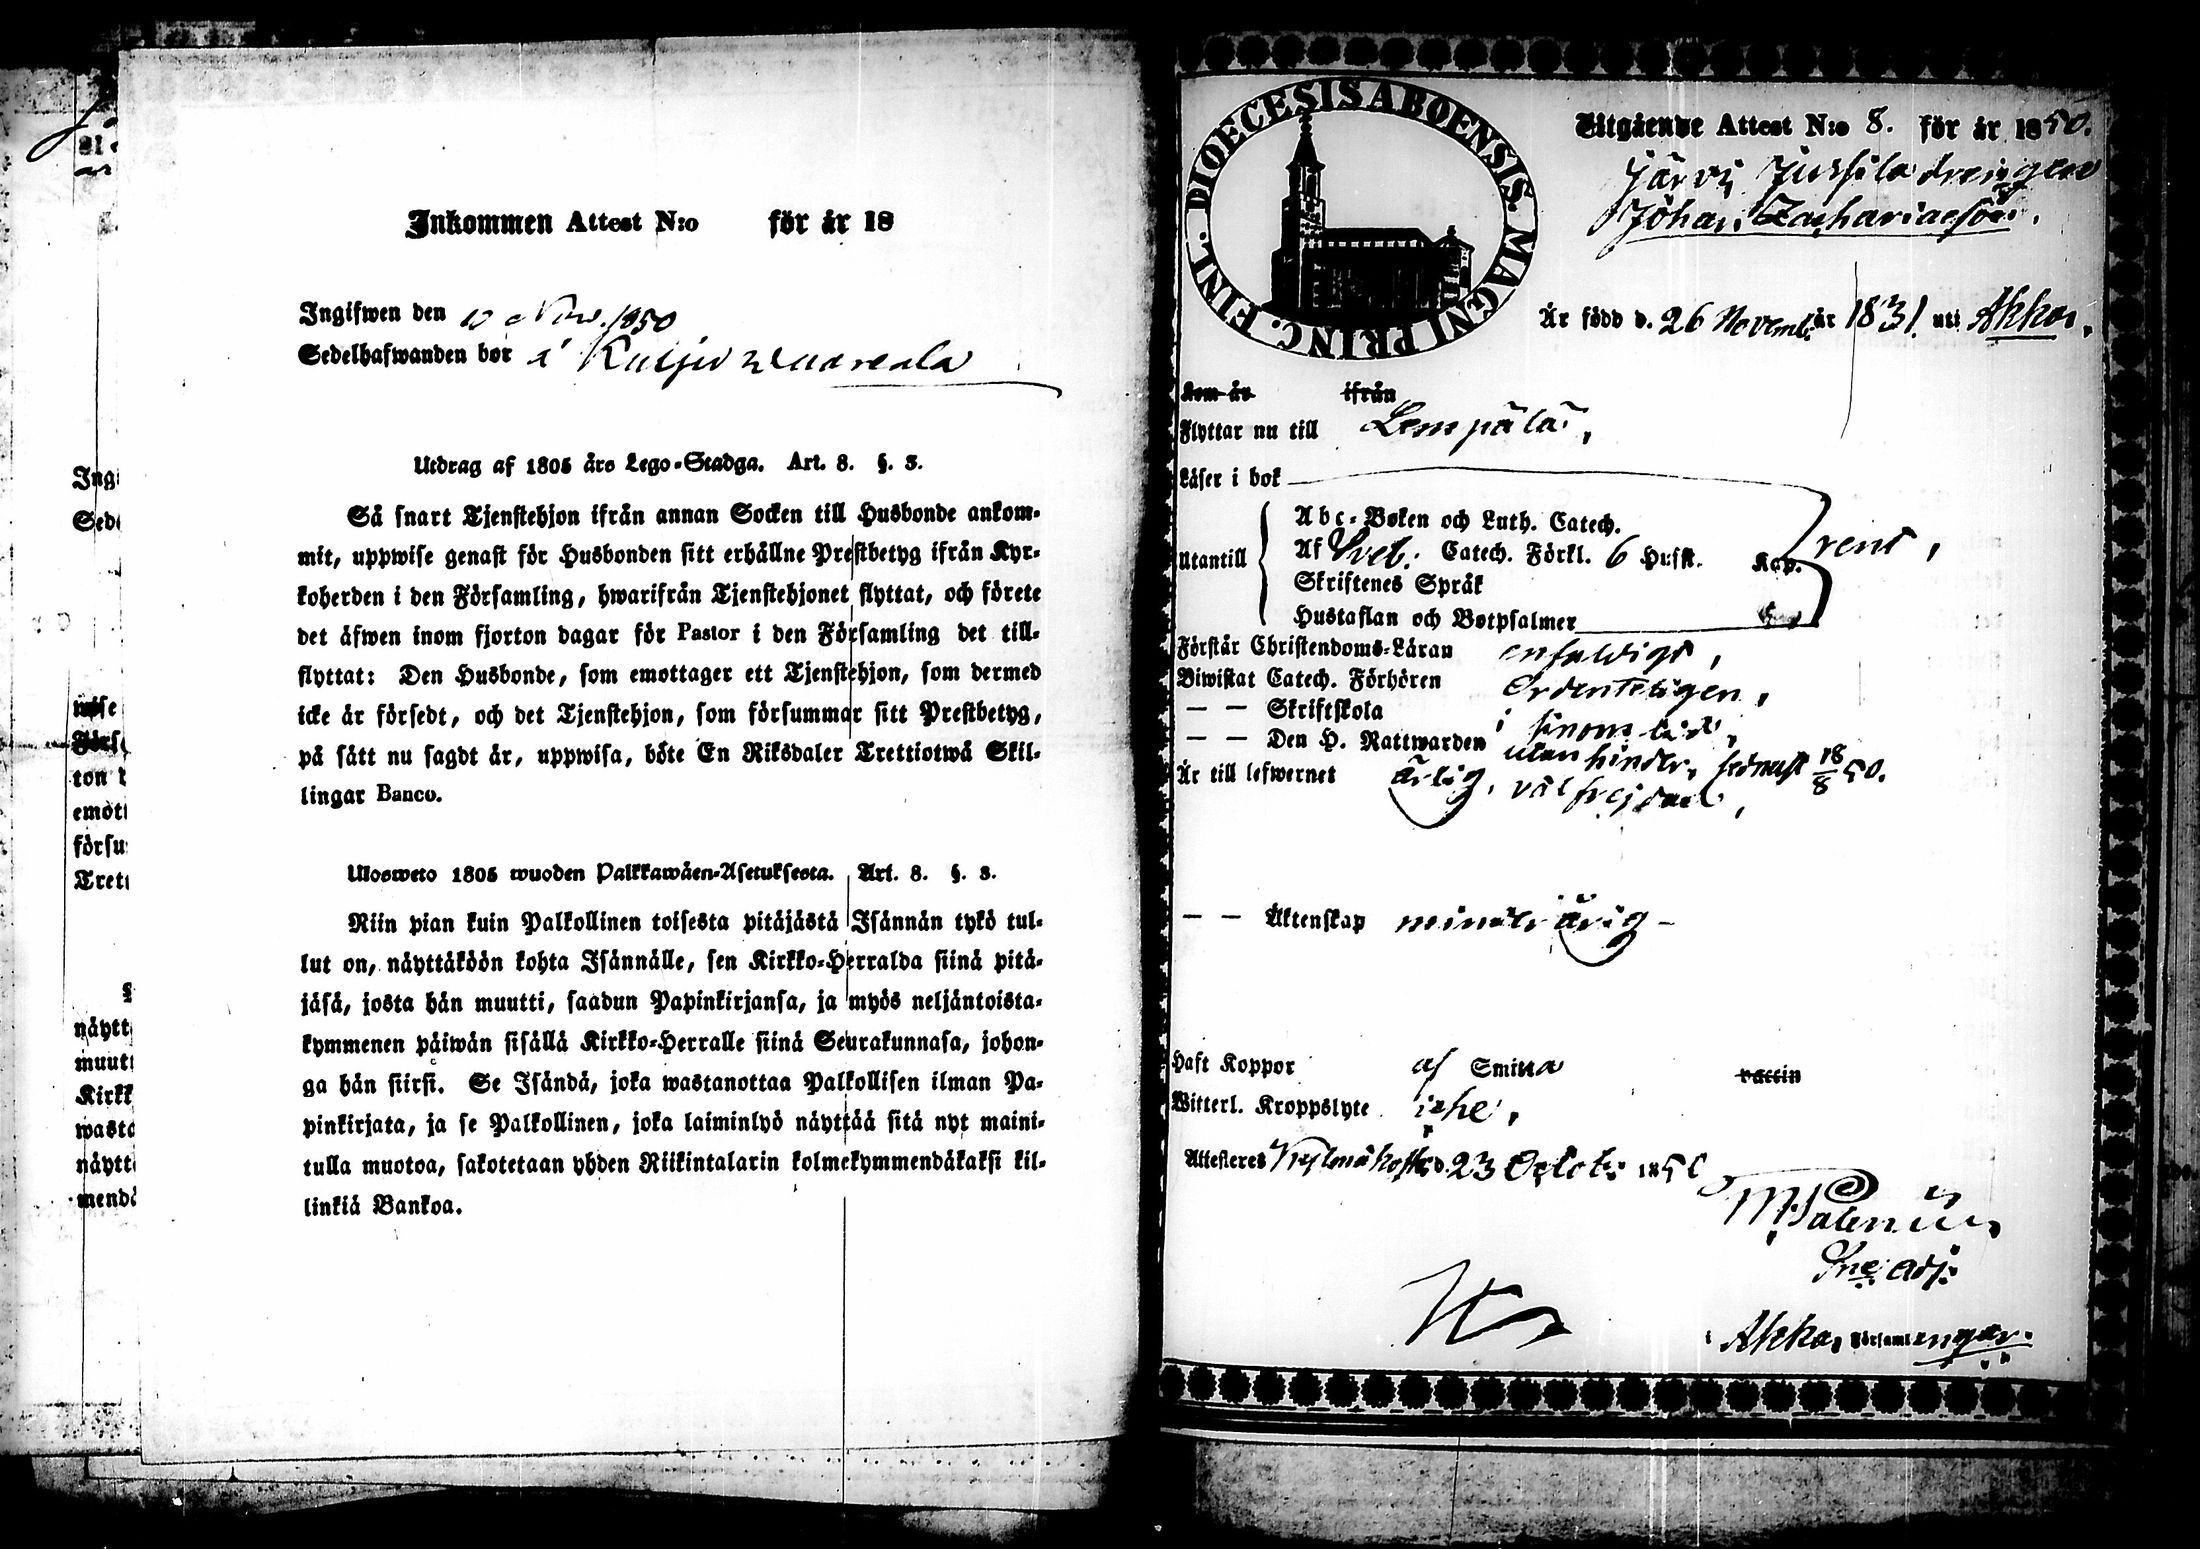 Inkommen Attest N:o för år 18
Ingifwen den 10 Nov. 1850
Sedelhafwanden bor i Kulju
Utdrag af 1805 års Lego-Stadga. Art. 8. §. 3.
Så snart Tjenstehjon ifrån annan Socken till Husbonde ankom-
mit, uppwise genast för Husbonden sitt erhållne Prestbetyg ifrån Kyr-
koherden i den Församling, hwarifrån Tjenstehjonet flyttat, och förete
det äfwen inom fjorton dagar för Pastor i den Församling det till-
flyttat: Den Husbonde, som emottager ett Tjenstehjon, som dermed
icke är försedt, och det Tjenstehjon, som försummar sitt Prestbetyg,
på sätt nu sagdt är, uppwisa, böte En Riksdaler Trettiotwå Skil-
lingar Banco.
Ulosweto 1805 wuoden Palkkawäen-Asetuksesta. Art. 8. §. 3.
Niin pian kuin Palkollinen toisesta pitäjästä Isännän tykö tul-
lut on, näyttäköön kohta Isännälle, sen Kirkko-Herralda siinä pitä-
jäsä, josta hän muutti, saadun Papinkirjansa, ja myös neljäntoista-
kymmenen päiwän sisällä Kirkko-Herralle siinä Seurakunnasa, johon-
ga hän siirsi. Se Isändä, joka wastanottaa Palkollisen ilman Pa-
pinkirjata, ja se Palkollinen, joka laiminlyö näyttää sitä nyt maini-
tulla muotoa, sakotetaan yhden Riikintalarin kolmekymmendäkaksi kil-
linkiä Bankoa.
DIOECESIS ABOENSIS. MAGNI PRINC. FINL.
Utgående Attest N:o 8. för år 1850.
Järvi Jussila drengen
Johan Zachariasson.
Är född d. 26 Novemb. år 1831 uti Akkas.
Kom år ifrån
Flyttar nu till Lempälä,
Läser i bok
Utantill
Abc-Boken och Luth. Catech.
Af Sveb. Catech. Förkl. 6 Hufst. Kap. rent,
Skriftenes Språk
Hustaflan och Botpsalmer
Förstår Christendoms-Läran enfaldigt,
Biwistat Catech. Förhören Ordenteligen,
— — Skriftskola i sinom tid,
— — Den H. Nattwarden utan hinder, sednast 18/8 50.
Är till lefwernet ärlig, välfrejdad,
— — Äktenskap minderårig —
Haft Koppor af Smitta vaccin
Witterl. Kroppslyte icke,
Attesteres d. 23 Octob. 1850
i Akkas Församlingar.